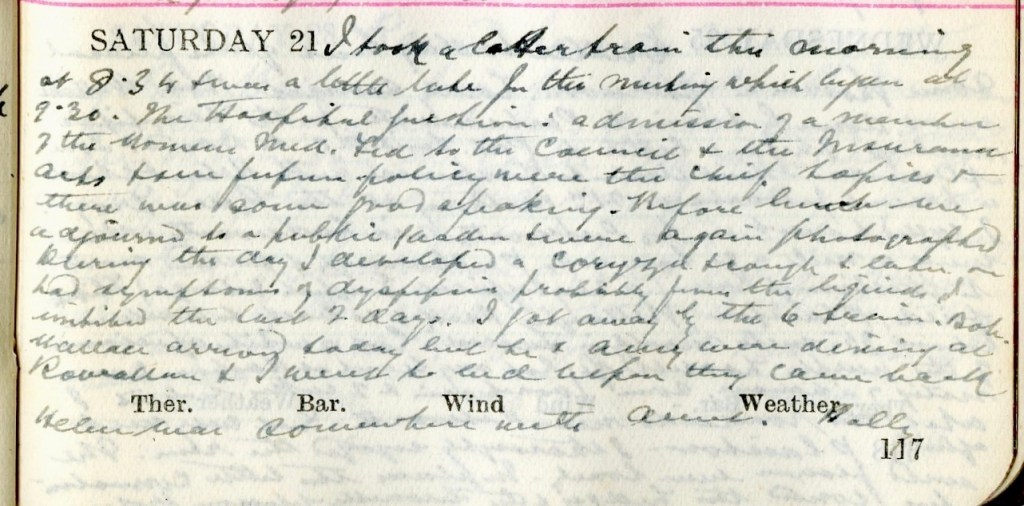 SATURDAY 21 I took a later train this morning
at 8.34 & was a little late for the meeting which began at
9.30. The Hospital question: admission of a member
of the Women's Med. Fed to the Council & the Insurance
Acts & our future policy were the chief topics &
there was some good speaking. Before lunch we
adjourned to a public garden & were again photographed
During the day I developed a coryza & cough & later on
had symptoms of dyspepsia probably from the liquids I
imbibed the last 2 days. I got away by the 6 train. Bob
Wallace arrived today but he & Amy were dining at
Rowallan & I went to bed before they came back
Ther. Bar. Wind Weather
Helen was somewhere with
117